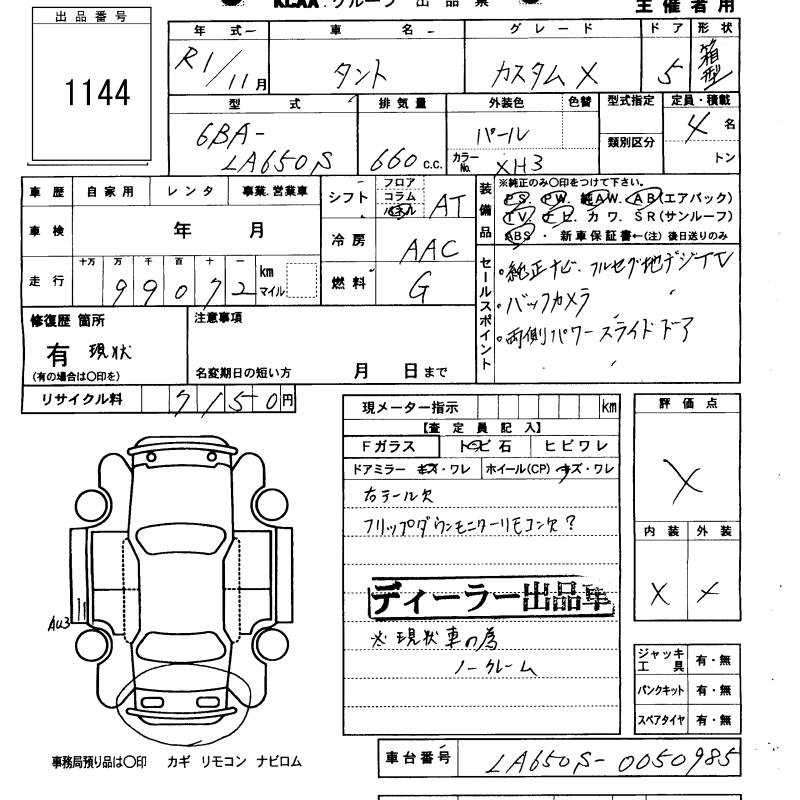 KCAA グループ 出品票
主催者用
出品番号
1144
年式 車名 グレード ドア 形状
R1/11月 タント カスタムX 5 箱型
型式 排気量 外装色 色替 型式指定 定員・積載
6BA-LA650S 660c.c. パール 4名
類別区分
カラーNo. XH3 トン
車歴 自家用 レンタ 事業.営業車
車検 年 月
走行 十万 万 千 百 十 一 km
99072 マイル
シフト フロア コラム パネル AT
冷房 AAC
燃料 G
装備品
※純正のみ〇印をつけて下さい。
PS. PW. 純AW. AB(エアバック)
TV. ナビ. カワ. SR(サンルーフ)
ABS ・ 新車保証書←(注) 後日送りのみ
セールスポイント
・純正ナビ、フルセグ地デジTV
・バックカメラ
・両側パワースライドドア
修復歴 箇所
有 現状
(有の場合は〇印を)
注意事項
名変期日の短い方 月 日まで
リサイクル料 7150円
現メーター指示 km
【査定員記入】
Fガラス トビ石 ヒビワレ
ドアミラー キズ・ワレ ホイール(CP) キズ・ワレ
右テール欠
フリップダウンモニターリモコン欠?
ディーラー出品車
※現状車の為
ノークレーム
評価点
X
内装 外装
X X
ジャッキ工具 有・無
パンクキット 有・無
スペアタイヤ 有・無
AU3
事務局預り品は〇印 カギ リモコン ナビロム
車台番号 LA650S-0050985